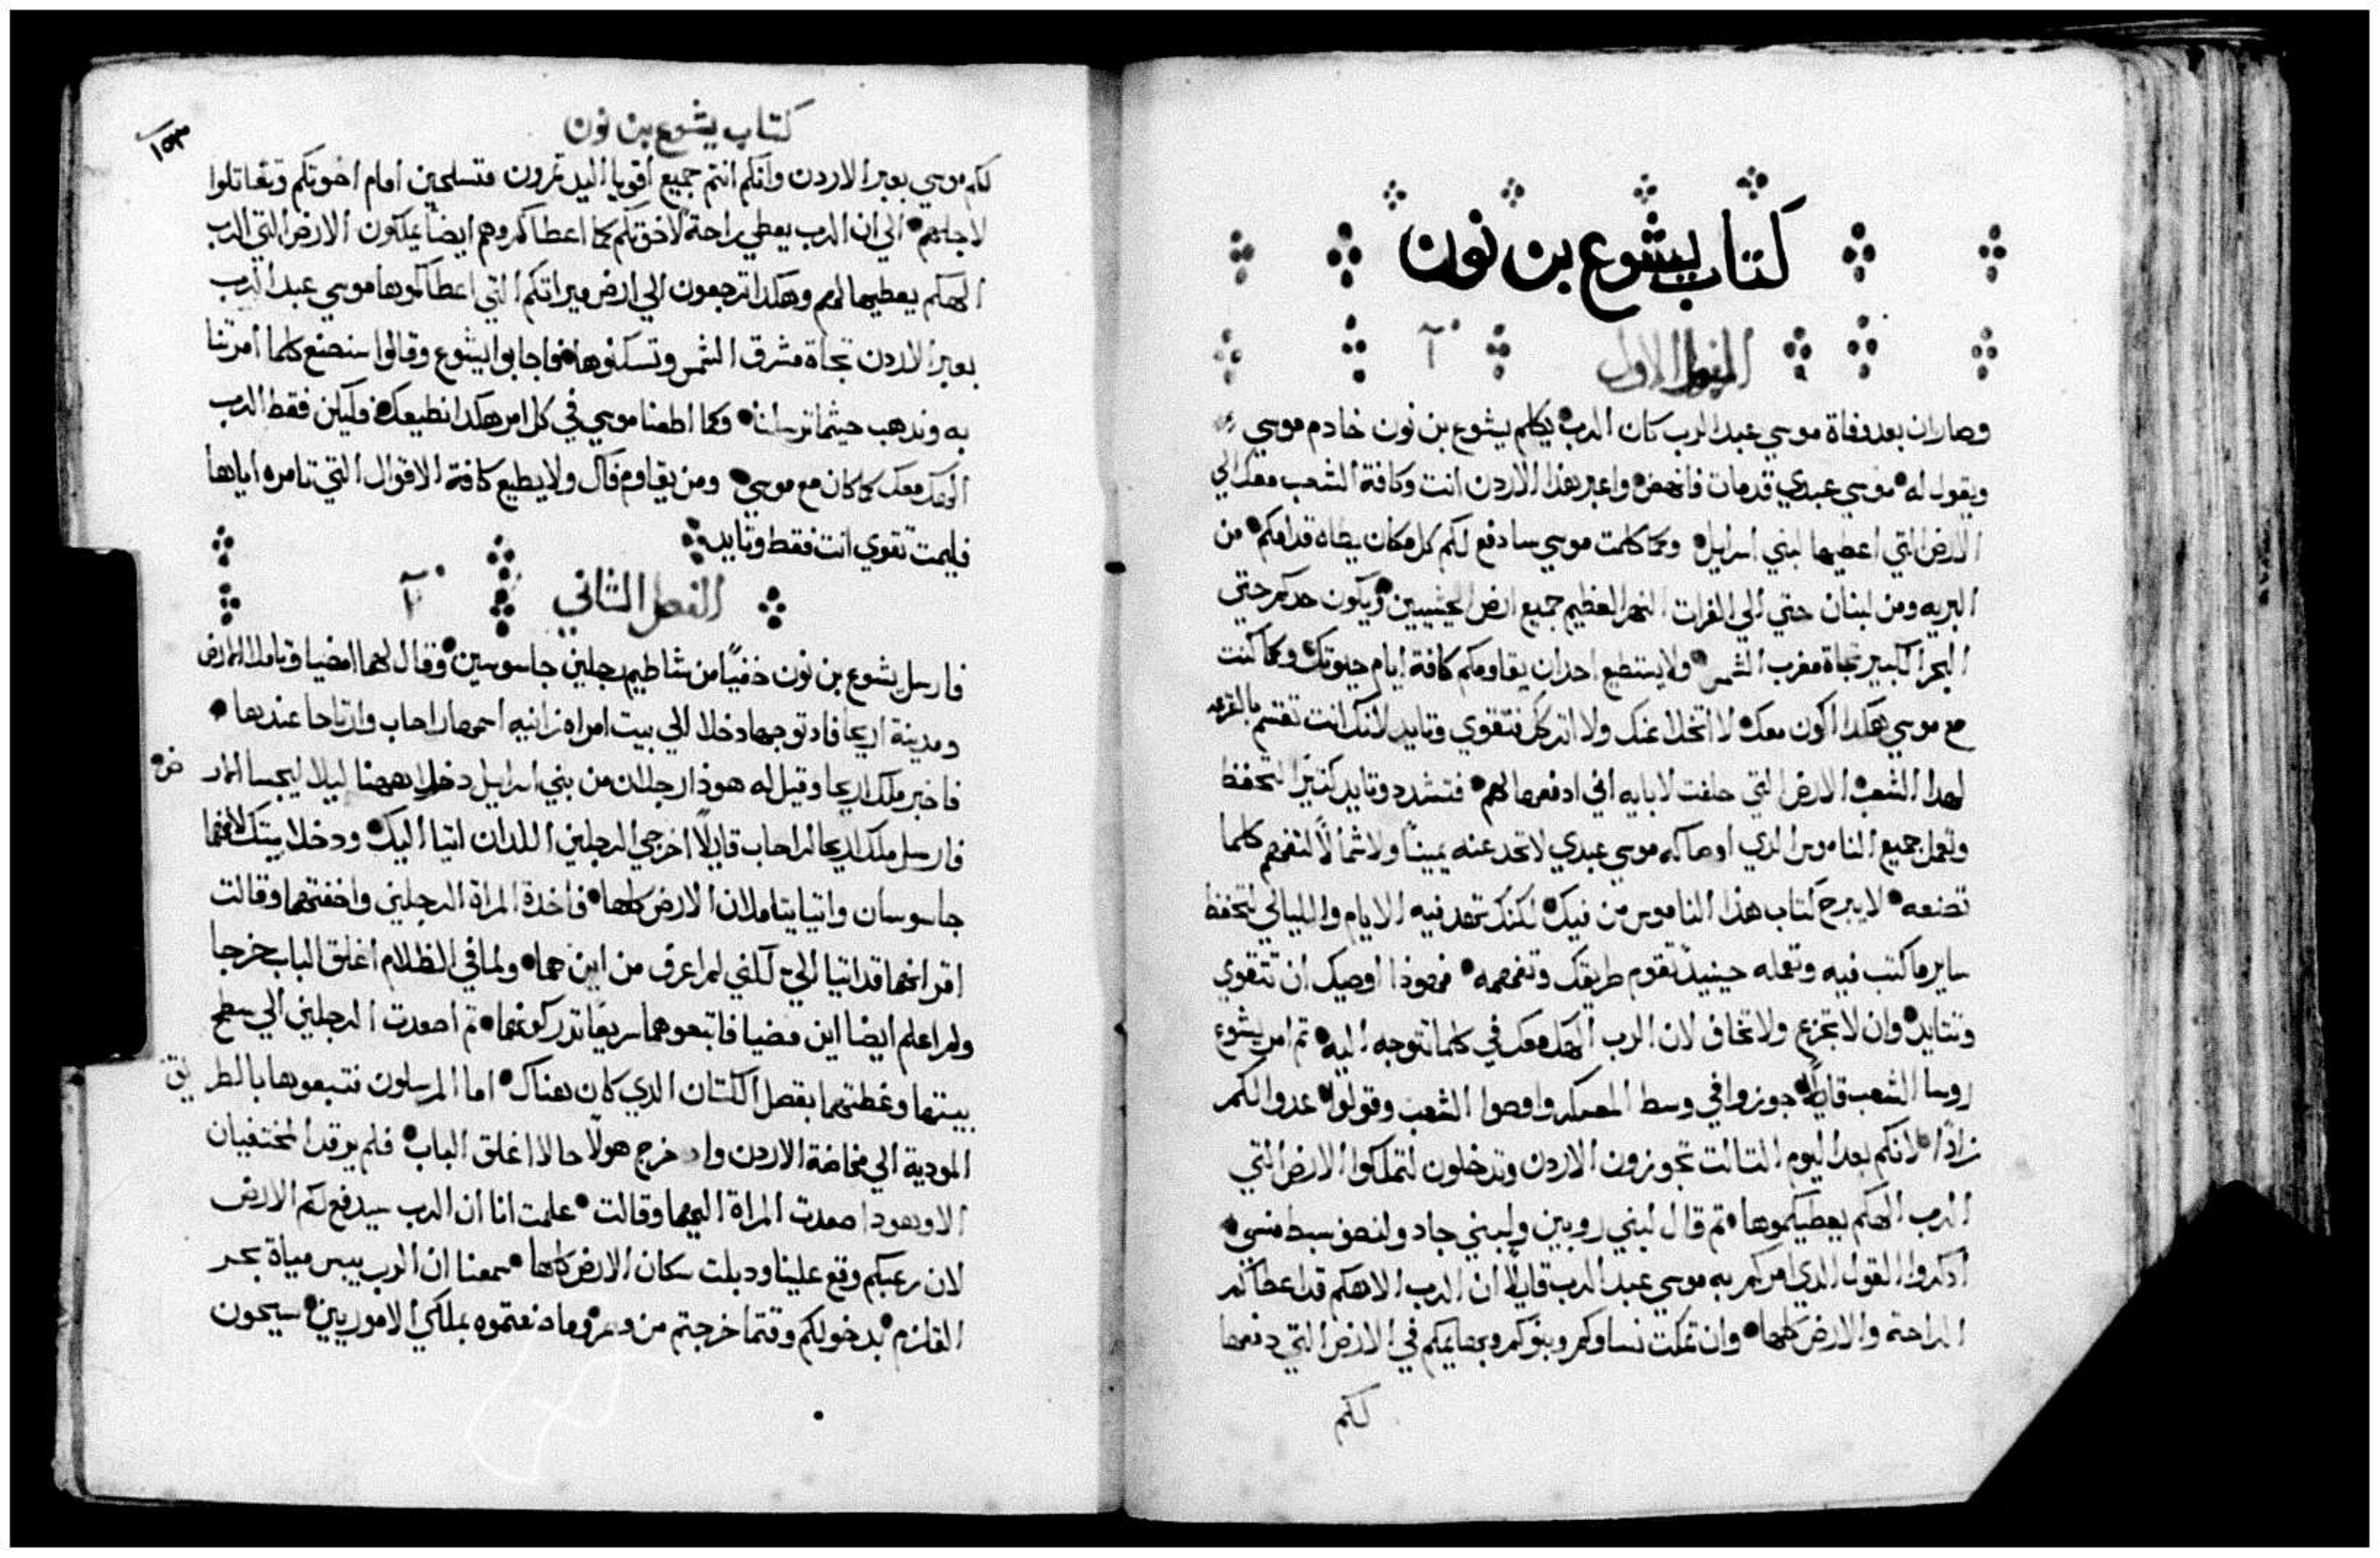 كتاب يشوع بن نون
الفصل الاول آ
وصار ان بعد وفاة موسي عبد الرب كان الرب يكلم يشوع بن نون خادم موسي
ويقول له موسي عبدي قد مات فانهض واعبر هذا الاردن انت وكافة الشعب معك الي
الارض التي اعطيها لبني اسرايل وكما كلمت موسي سادفع لكم كل مكان يطاه قدامكم من
البريه ومن لبنان حتي الي الفرات النهر العظيم جميع ارض الحيثيين ويكون حدكم حتي
البحر الكبير تجاة مغرب الشمس ولا يستطع احد ان يقاومكم كافة ايام حيوتك وكما كنت
مع موسي هكدا اكون معك لا اتخلا عنك ولا اتركك فتقوي وتايد لانك انت تقسم بالقرعه
لهدا الشعب الارض التي حلفت لابايه اني ادفعها لهم فتشدد وتايد كثيرا لتحفظ
وتعمل جميع الناموس الدي اوصاكه موسي عبدي لا تحد عنه يمينا ولا شمالا لتفهم كلما
تصنعه لا يبرح كتاب هذا الناموس من فيك لكنك تهد فيه الايام والليالي لتحفظ
ساير ما كتب فيه وتعمله حينيد تقوم طريقك وتفهمه فهوذا اوصيك ان تتقوي
وتتايد وان لا تجزع ولا تخاف لان الرب الهك معك في كلما تتوجه اليه تم امر يشوع
روسا الشعب قايلا جوزوا في وسط المعسكر واوصوا الشعب وقولوا عدوا لكم
زادا لانكم بعد اليوم التالت تجوزون الاردن وتدخلون لتملكوا الارض التي
الرب الهكم يعطيكموها تم قال لبني روبين ولبني جاد ولنصف سبط منسي
ادكروا القول الدي امركم به موسي عبد الرب قايلا ان الرب الاهكم قد اعطاكم
الراحة والارض كلها وان تمكت نساوكم وبنوكم وبهايمكم في الارض التي دفعها
لكم
كتاب يشوع بن نون
١٥٣
لكم موسي بعبر الاردن وانكم انتم جميع اقويا اليد تمرون متسلحين امام اخوتكم وتقاتلوا
لاجلهم الي ان الرب يعطي راحة لاخوتكم كما اعطاكم وهم ايضا يملكون الارض التي الرب
الهكم يعطيها لهم وهكدا ترجعون الي ارض ميراتكم التي اعطاكموها موسي عبد الرب
بعبر الاردن تجاة مشرق الشمس وتسكنوها فاجابوا يشوع وقالوا سنصنع كلما امرتنا
به وندهب حيثما ترسلنا وكما اطعنا موسي في كل امر هكدا نطيعك فليكن فقط الرب
الهك معك كما كان مع موسي ومن يقاوم فاك ولا يطيع كافة الاقوال التي تامره اياها
فليمت تقوي انت فقط وتايد
الفصل الثاني
فارسل يشوع بن نون خفيا من شاطيم رجلين جاسوسين وقال لهما امضيا وتاملا الارض
ومدينة اريحا فاد توجها دخلا الي بيت امراه زانيه اسمها راحاب وارتاحا عندها
فاخبر ملك اريحا وقيل له هوذا رجلان من بني اسرايل دخلا ههنا ليلا ليجسا الار ض
فارسل ملك اريحا لراحاب قايلا اخرجي الرجلين اللدان اتيا اليك ودخلا بيتك لانهما
جاسوسان واتيا يتاملان الارض كلها فاخدة المراة الرجلين واخفتهما وقالت
اقر انهما قد اتيا الي لكني لم اعرف من اين هما ولما في الظلام اغلق الباب خرجا
ولم اعلم ايضا اين مضيا فاتبعوهما سريعا تدركونهما تم اصعدت الرجلين الي سطح
بيتها وغطتهما بقصل الكتان الدي كان هناك اما المرسلون فتبعوها بالطر يق
المودية الي مخاضة الاردن واد خرج هولا حالا اغلق الباب فلم يرقد المختفيان
الا وهودا صعدت المراة اليهما وقالت علمت انا ان الرب سيدفع لكم الارض
لان رعبكم وقع علينا ودبلت سكان الارض كلها سمعنا ان الرب يبس مياة بحر
القلزم بدخولكم وقتما خرجتم من مصر وما صنعتموه بملكي الاموريين سيحون